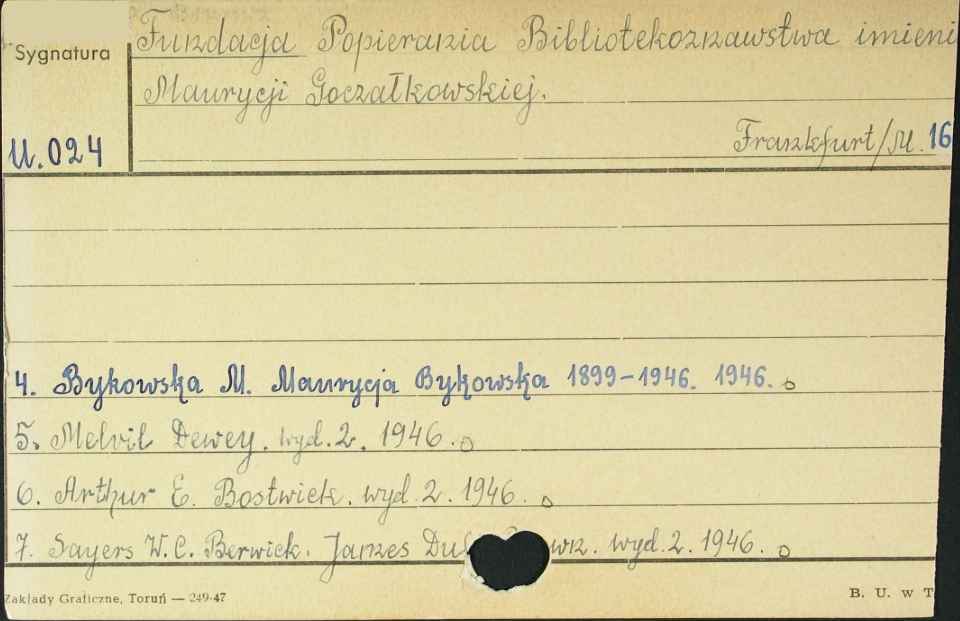 Sygnatura
Fundacja Popierania Bibliotekoznawstwa imieni
Maurycji Goczałkowskiej.
U.024
Frankfurt/M. 16
4. Bykowska M. Maurycja Bykowska 1899-1946. 1946.
5. Melvil Dewey. wyd. 2. 1946.
6. Arthur E. Bostwick. wyd. 2. 1946.
7. Sayers W. C. Berwick. James wyd. 2. 1946.
Zakłady Graficzne, Toruń — 249-47
B. U. w T